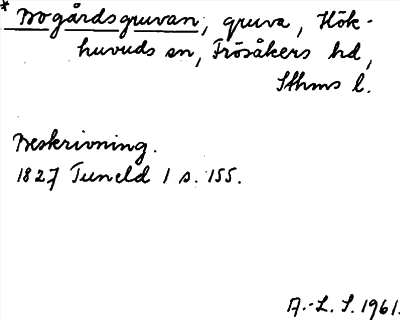 * Bogårdsgruvan, gruva, Hök-
huvuds sn, Frösåkers hd,
Sthms l.
Beskrivning.
1827 Tuneld 1 s. 155.
A.-L. S. 1961.